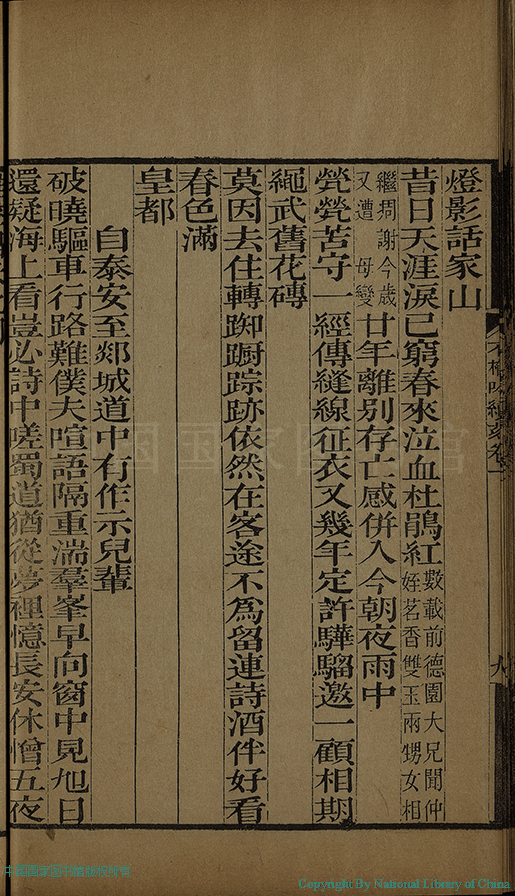 燈影話家山
昔日天涯淚已窮春來泣血杜鵑紅數載前德園大兄聞仲
姪茗香雙玉兩甥女相
繼殂謝今歲
又遭　母變廿年離別存亡感併入今朝夜雨中
煢煢苦守一經傳縫線征衣又幾年定許驊騮邀一顧相期
繩武舊花磚
莫因去住轉踟蹰踪跡依然在客途不為留連詩酒伴好看
春色滿
皇都
自泰安至郯城道中有作示兒輩
破曉驅車行路難僕夫喧語隔重湍羣峯早向窗中見旭日
還疑海上看豈必詩中嗟蜀道猶從夢裡憶長安休憎五夜
中国国家图书馆
Copyright By National Library of China